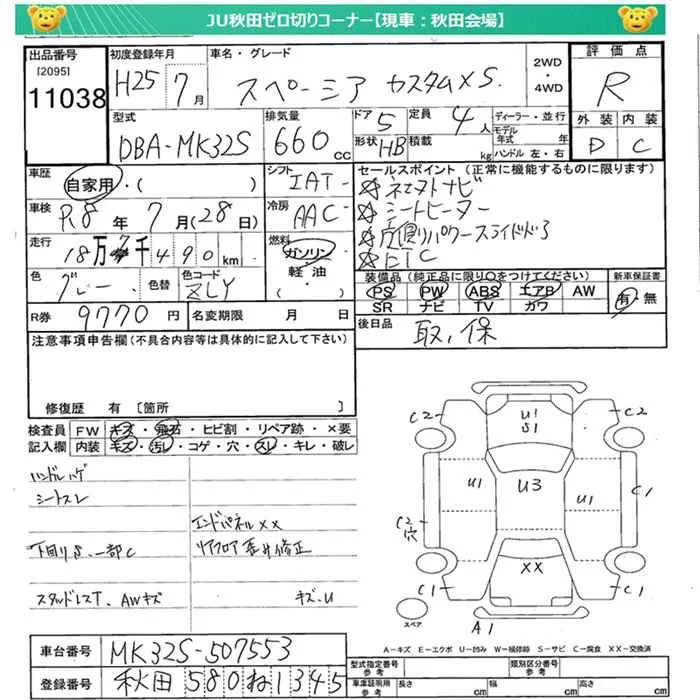 JU秋田ゼロ切りコーナー【現車:秋田会場】
出品番号
[2095]
11038
初度登録年月
H25 7月
車名・グレード
スペーシア カスタムXS
2WD
・
4WD
評価点
R
外装 内装
D C
型式
DBA-MK32S
排気量
660cc
ドア 5
形状 HB
定員 4人
積載 kg
ディーラー・並行
モデル年式 年
ハンドル 左・右
車歴
自家用・( )
車検
R8年7月(28日)
走行
18万7千490km
色
グレー
色替
色コード
ZLY
シフト
IAT
冷房
AAC
燃料
ガソリン・
軽油・
( )
セールスポイント(正常に機能するものに限ります)
☆ネクストナビ
☆シートヒーター
☆片側パワースライドドア
☆ETC
装備品(純正品に限り○をつけてください)
PS PW ABS エアB AW
SR ナビ TV カワ
新車保証書
有・無
R券 9770円
名変期限 月 日
後日品
取.保
注意事項申告欄(不具合内容等は具体的に記入して下さい)
修復歴 有 [箇所 ]
検査員記入欄
FW キズ・飛石・ヒビ割・リペア跡・×要
内装 キズ・汚レ・コゲ・穴・スレ・キレ・破レ
ハンドルハゲ
シートスレ
エンドパネルXX
下回りS、一部C
リアフロア歪み修正
スタッドレスT、AWキズ
キズ.U
C2
U1
S1
C2
U1
U3
U1
C1
C2
穴
XX
C1
C1
スペア
A1
A-キズ E-エクボ U-凹み W-補修跡 S-サビ C-腐食 XX-交換済
車台番号
MK32S-507553
登録番号
秋田580ね1345
型式指定番号
参考
類別区分番号
参考
車庫証明用
参考
長さ cm
幅 cm
高さ cm